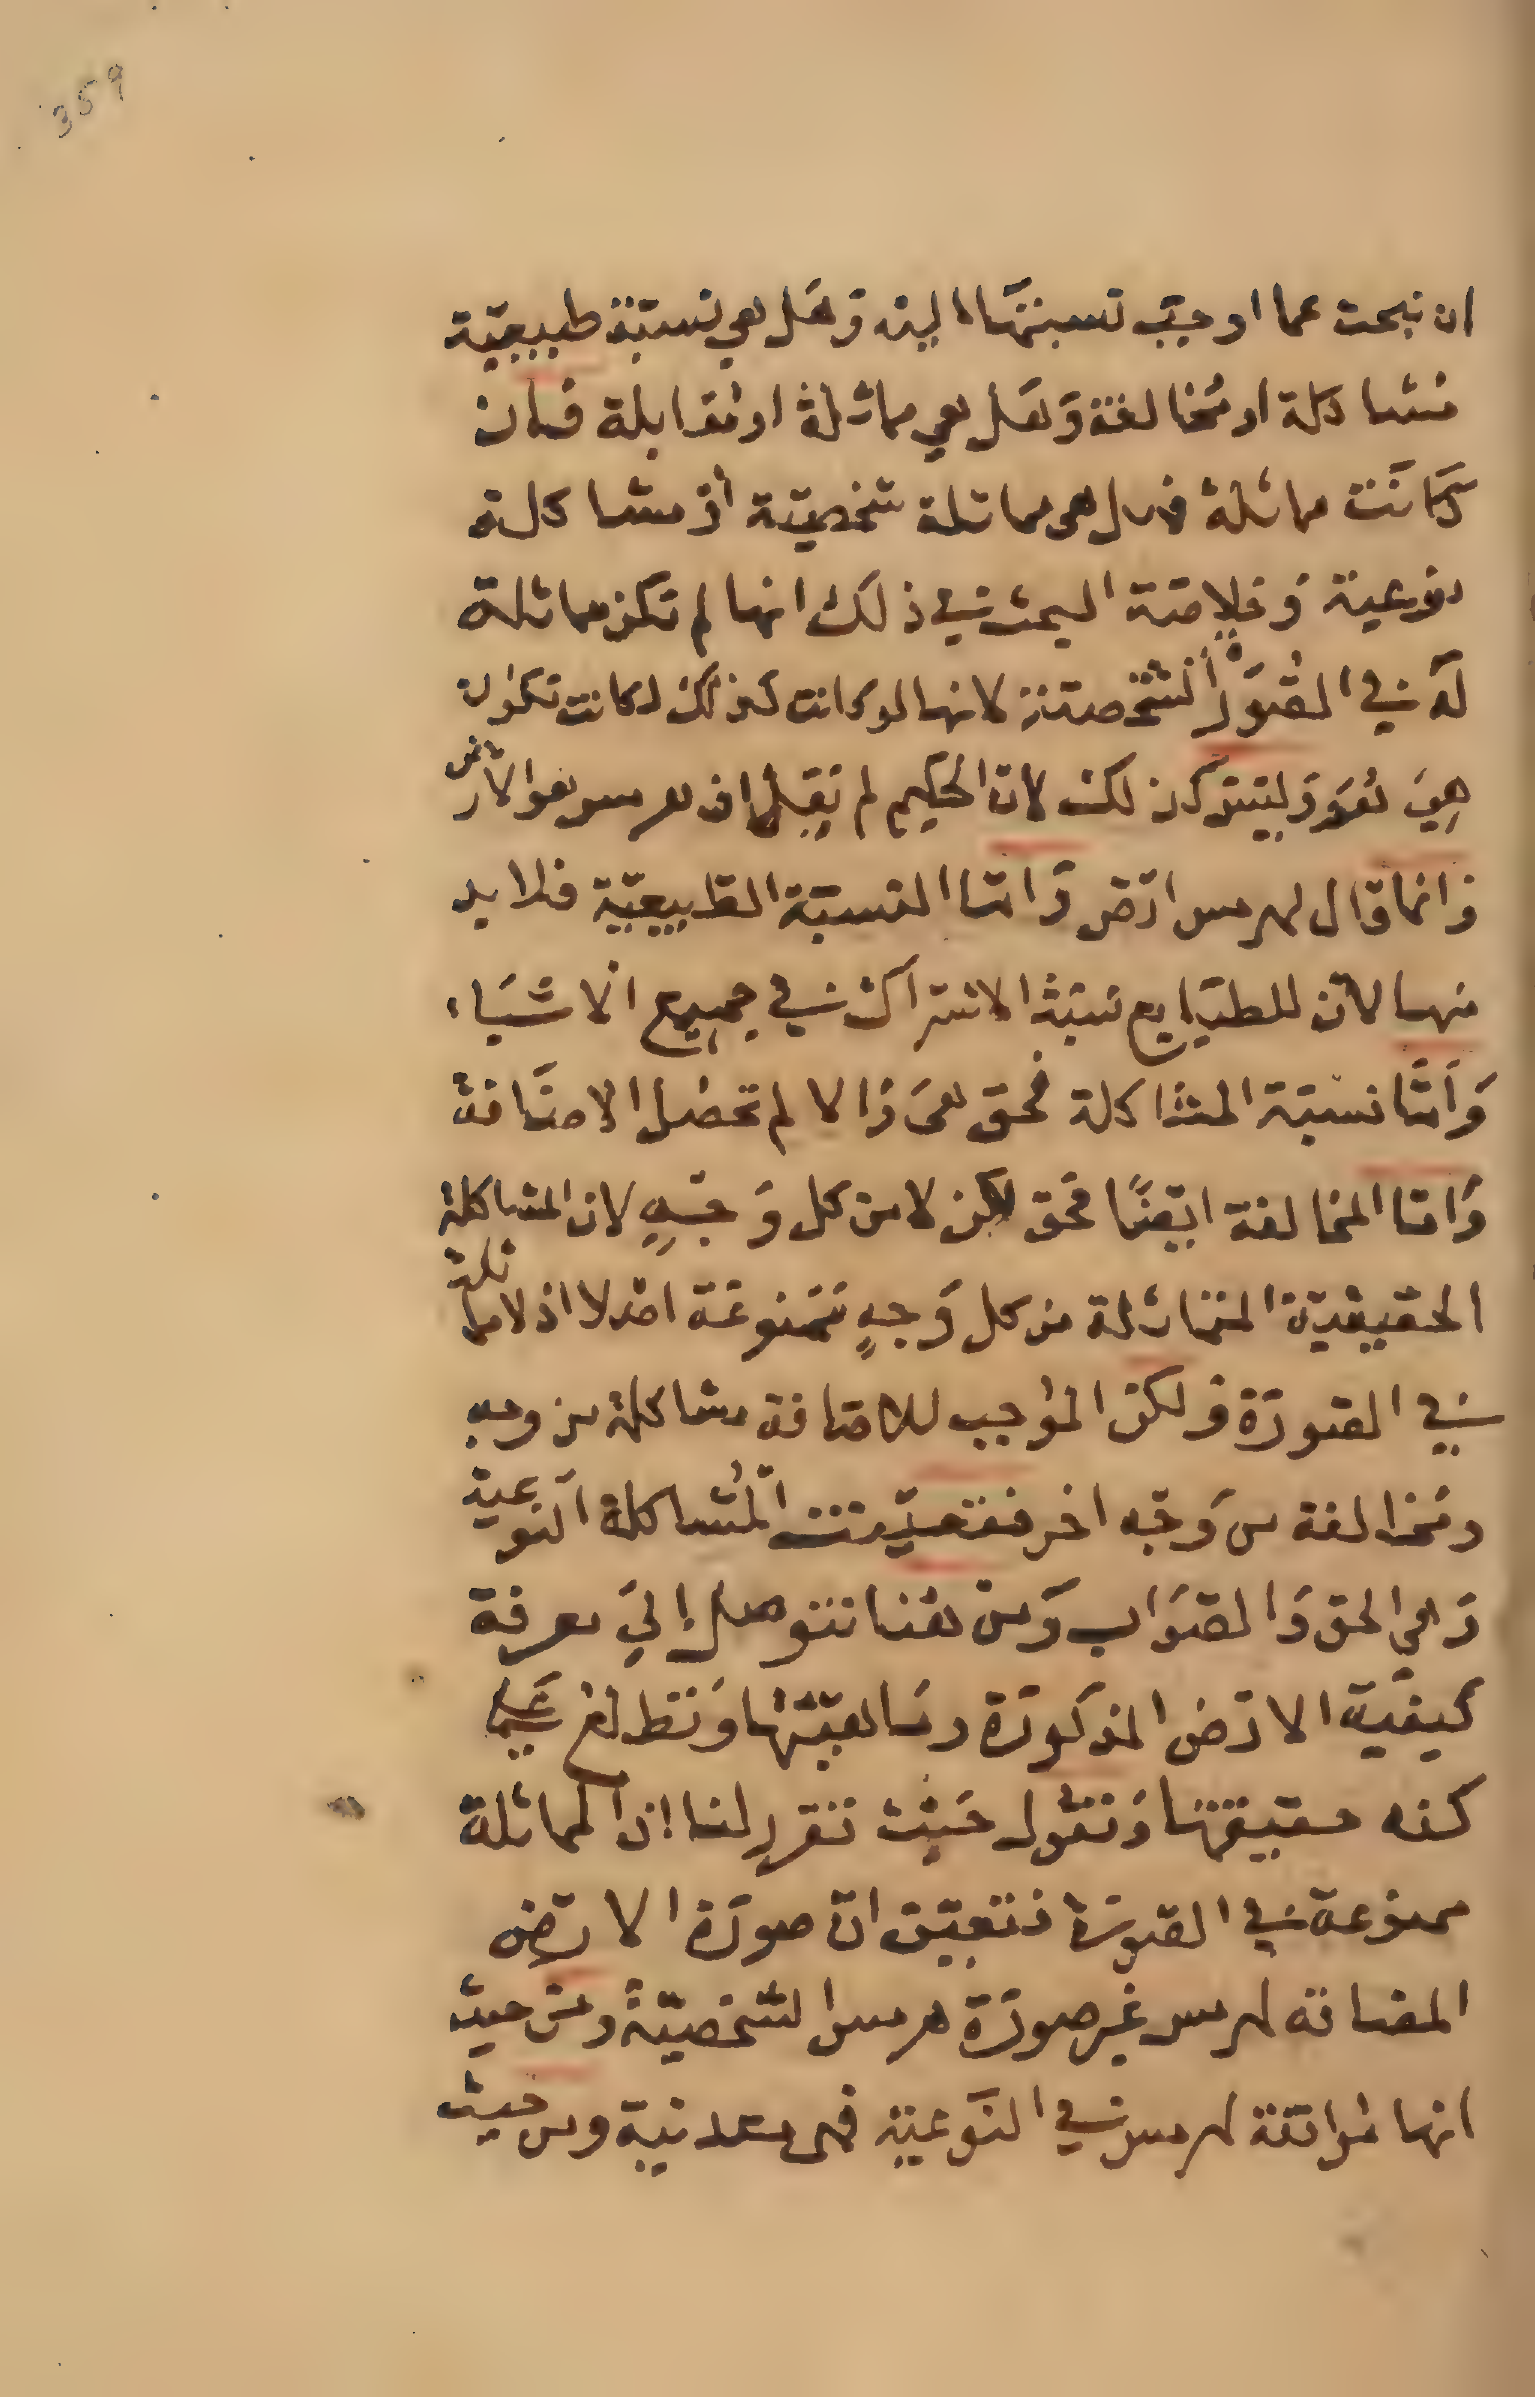 359
ان نبحث عما اوجبَ نسبتهَا اليه وَهَل هي نسبَة طبيعيّة
مُشاكلة او مُخالفة وَهَل هي مماثلة او مُقابلة فان
كَانَت مماثلة فهل هى مماثلة شخصيّة أوْ مشاكلة
نوعية وَخلاصَة البحث في ذلك انها لم تكن مماثلة
لَه في الصُّوَرة الشخصيّة لانها لو كانت كذلك لكانت تكون
هِيَ هُوَ وَليسَ كذلك لان الحكيم لم يَقُل ان هرمس هو الارض
وَانما قال لهرمس ارَض وَامّا النسبَة الطبيعيّة فلا بد
منها لان للطبَايع نسبَة الاشتراك في جميع الاشيَاء
وَأمّا نسبَة المشَاكلة فحق هىَ وَالا لم تحصُل الاضَافة
وَامّا المخالفة ايضًا فَحق لكن لا من كل وَجْهٍ لان المشاكلة
الحقيقيّة المتماثلة من كل وَجهٍ ممنوعَة اصْلا اذ لا مماثلة
في الصورَة وَلكن المُوجب للاضافة مشاكلة من وجه
ومُخالفة من وَجْه اخر فتعيّنت المُشاكلة النَوعية
وَهى الحق وَالصَوَاب وَمن هُنا نتوصل إلىَ معرفة
كيفيَة الارَض المذكورَة ومَاهيّتها وَنَطلع عَلى
كنه حقيقتها وَنقُول حَيْث تقرر لنا ان المماثلة
ممنوعة في الصورَة فتعيّن انّ صورَة الارَض
المضافه لهرمس غير صورَة هرمس الشّخصيّة ومن حيث
انها مُوافقة لهرمس في النَوعية فهى معدنية ومن حيث